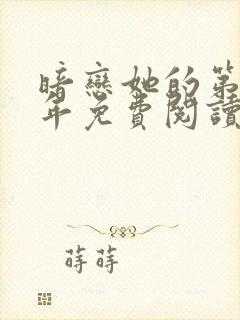 暗戀她的第
年免費閱讀
蒔蒔